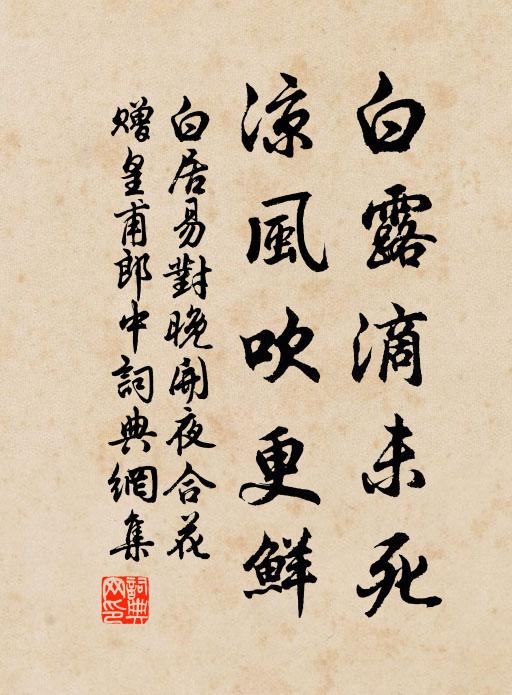 白露滴未死
凉風吹更鮮
白居易對晚開夜合花
赠皇甫郎中詞典網集
詞典網印